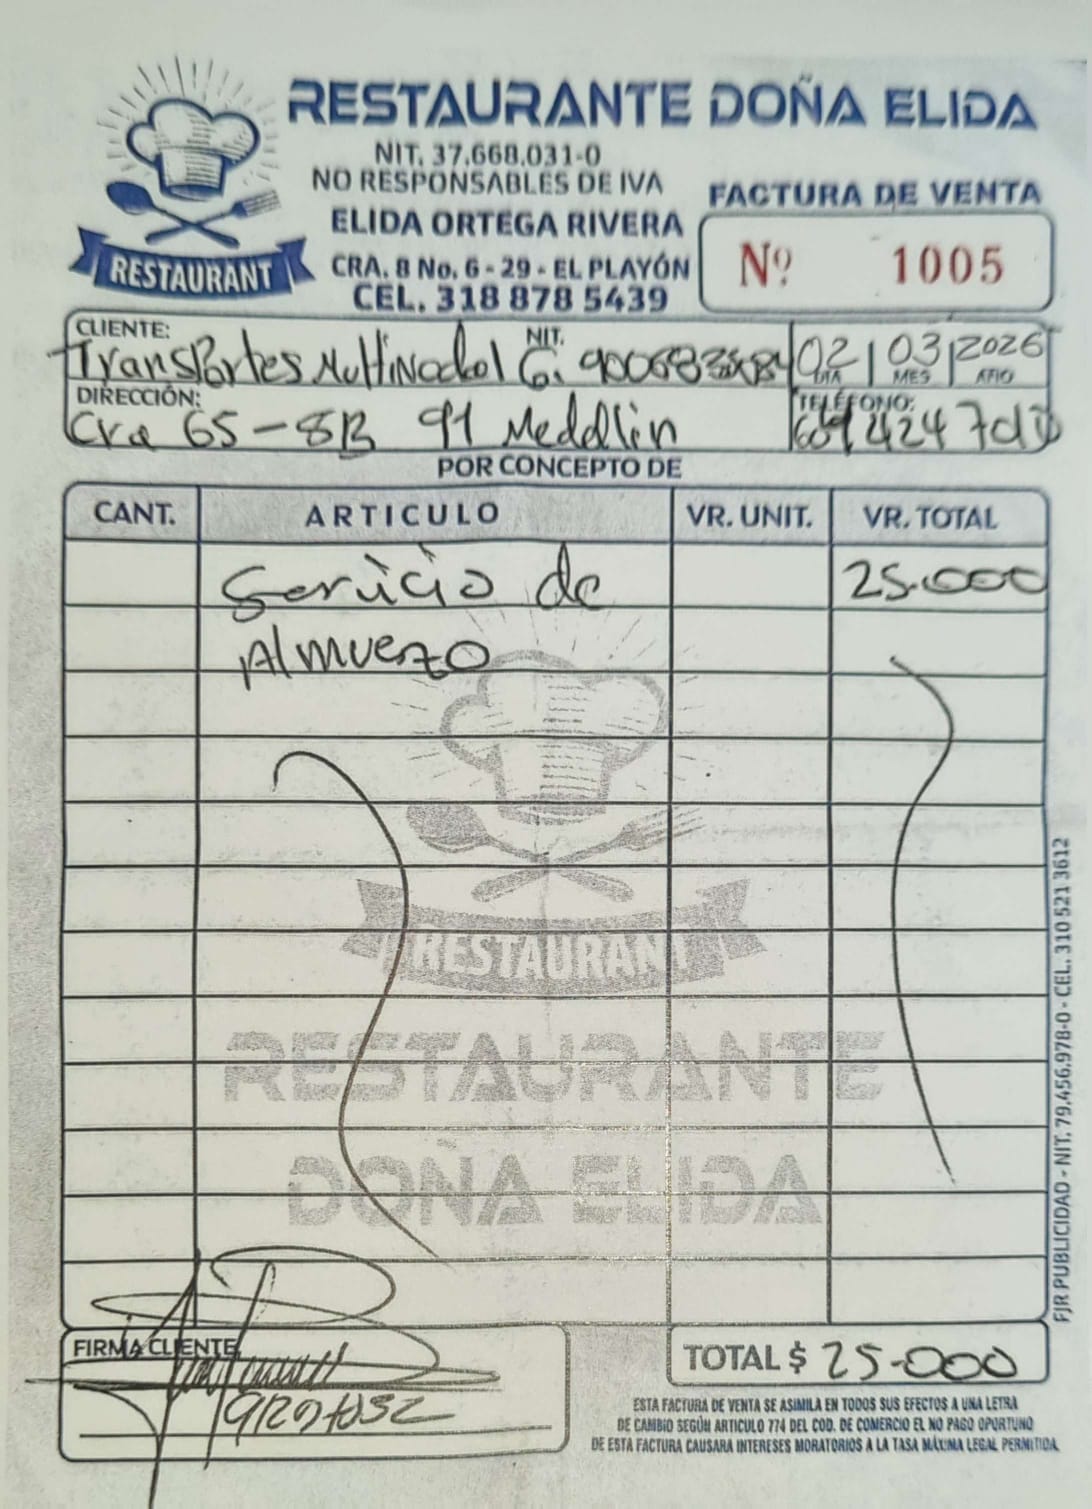 RESTAURANTE DOÑA ELIDA
NIT. 37.668.031-0
NO RESPONSABLES DE IVA
ELIDA ORTEGA RIVERA
CRA. 8 No. 6 - 29 - EL PLAYÓN
CEL. 318 878 5439
RESTAURANT
FACTURA DE VENTA
Nº 1005
CLIENTE: Transportes Multimodal G. NIT.
02 03 2026
DIA MES AÑO
DIRECCIÓN: Cra 65-8B 91 Medellin
TELÉFONO:
POR CONCEPTO DE
CANT. ARTICULO VR. UNIT. VR. TOTAL
Servicio de 25.000
Almuerzo
RESTAURANT
RESTAURANTE
DOÑA ELIDA
FIRMA CLIENTE
TOTAL $ 25.000
ESTA FACTURA DE VENTA SE ASIMILA EN TODOS SUS EFECTOS A UNA LETRA
DE CAMBIO SEGÚN ARTICULO 774 DEL COD. DE COMERCIO EL NO PAGO OPORTUNO
DE ESTA FACTURA CAUSARA INTERESES MORATORIOS A LA TASA MÁXIMA LEGAL PERMITIDA
FJR PUBLICIDAD - NIT. 79.456.978-0 - CEL. 310 521 3612